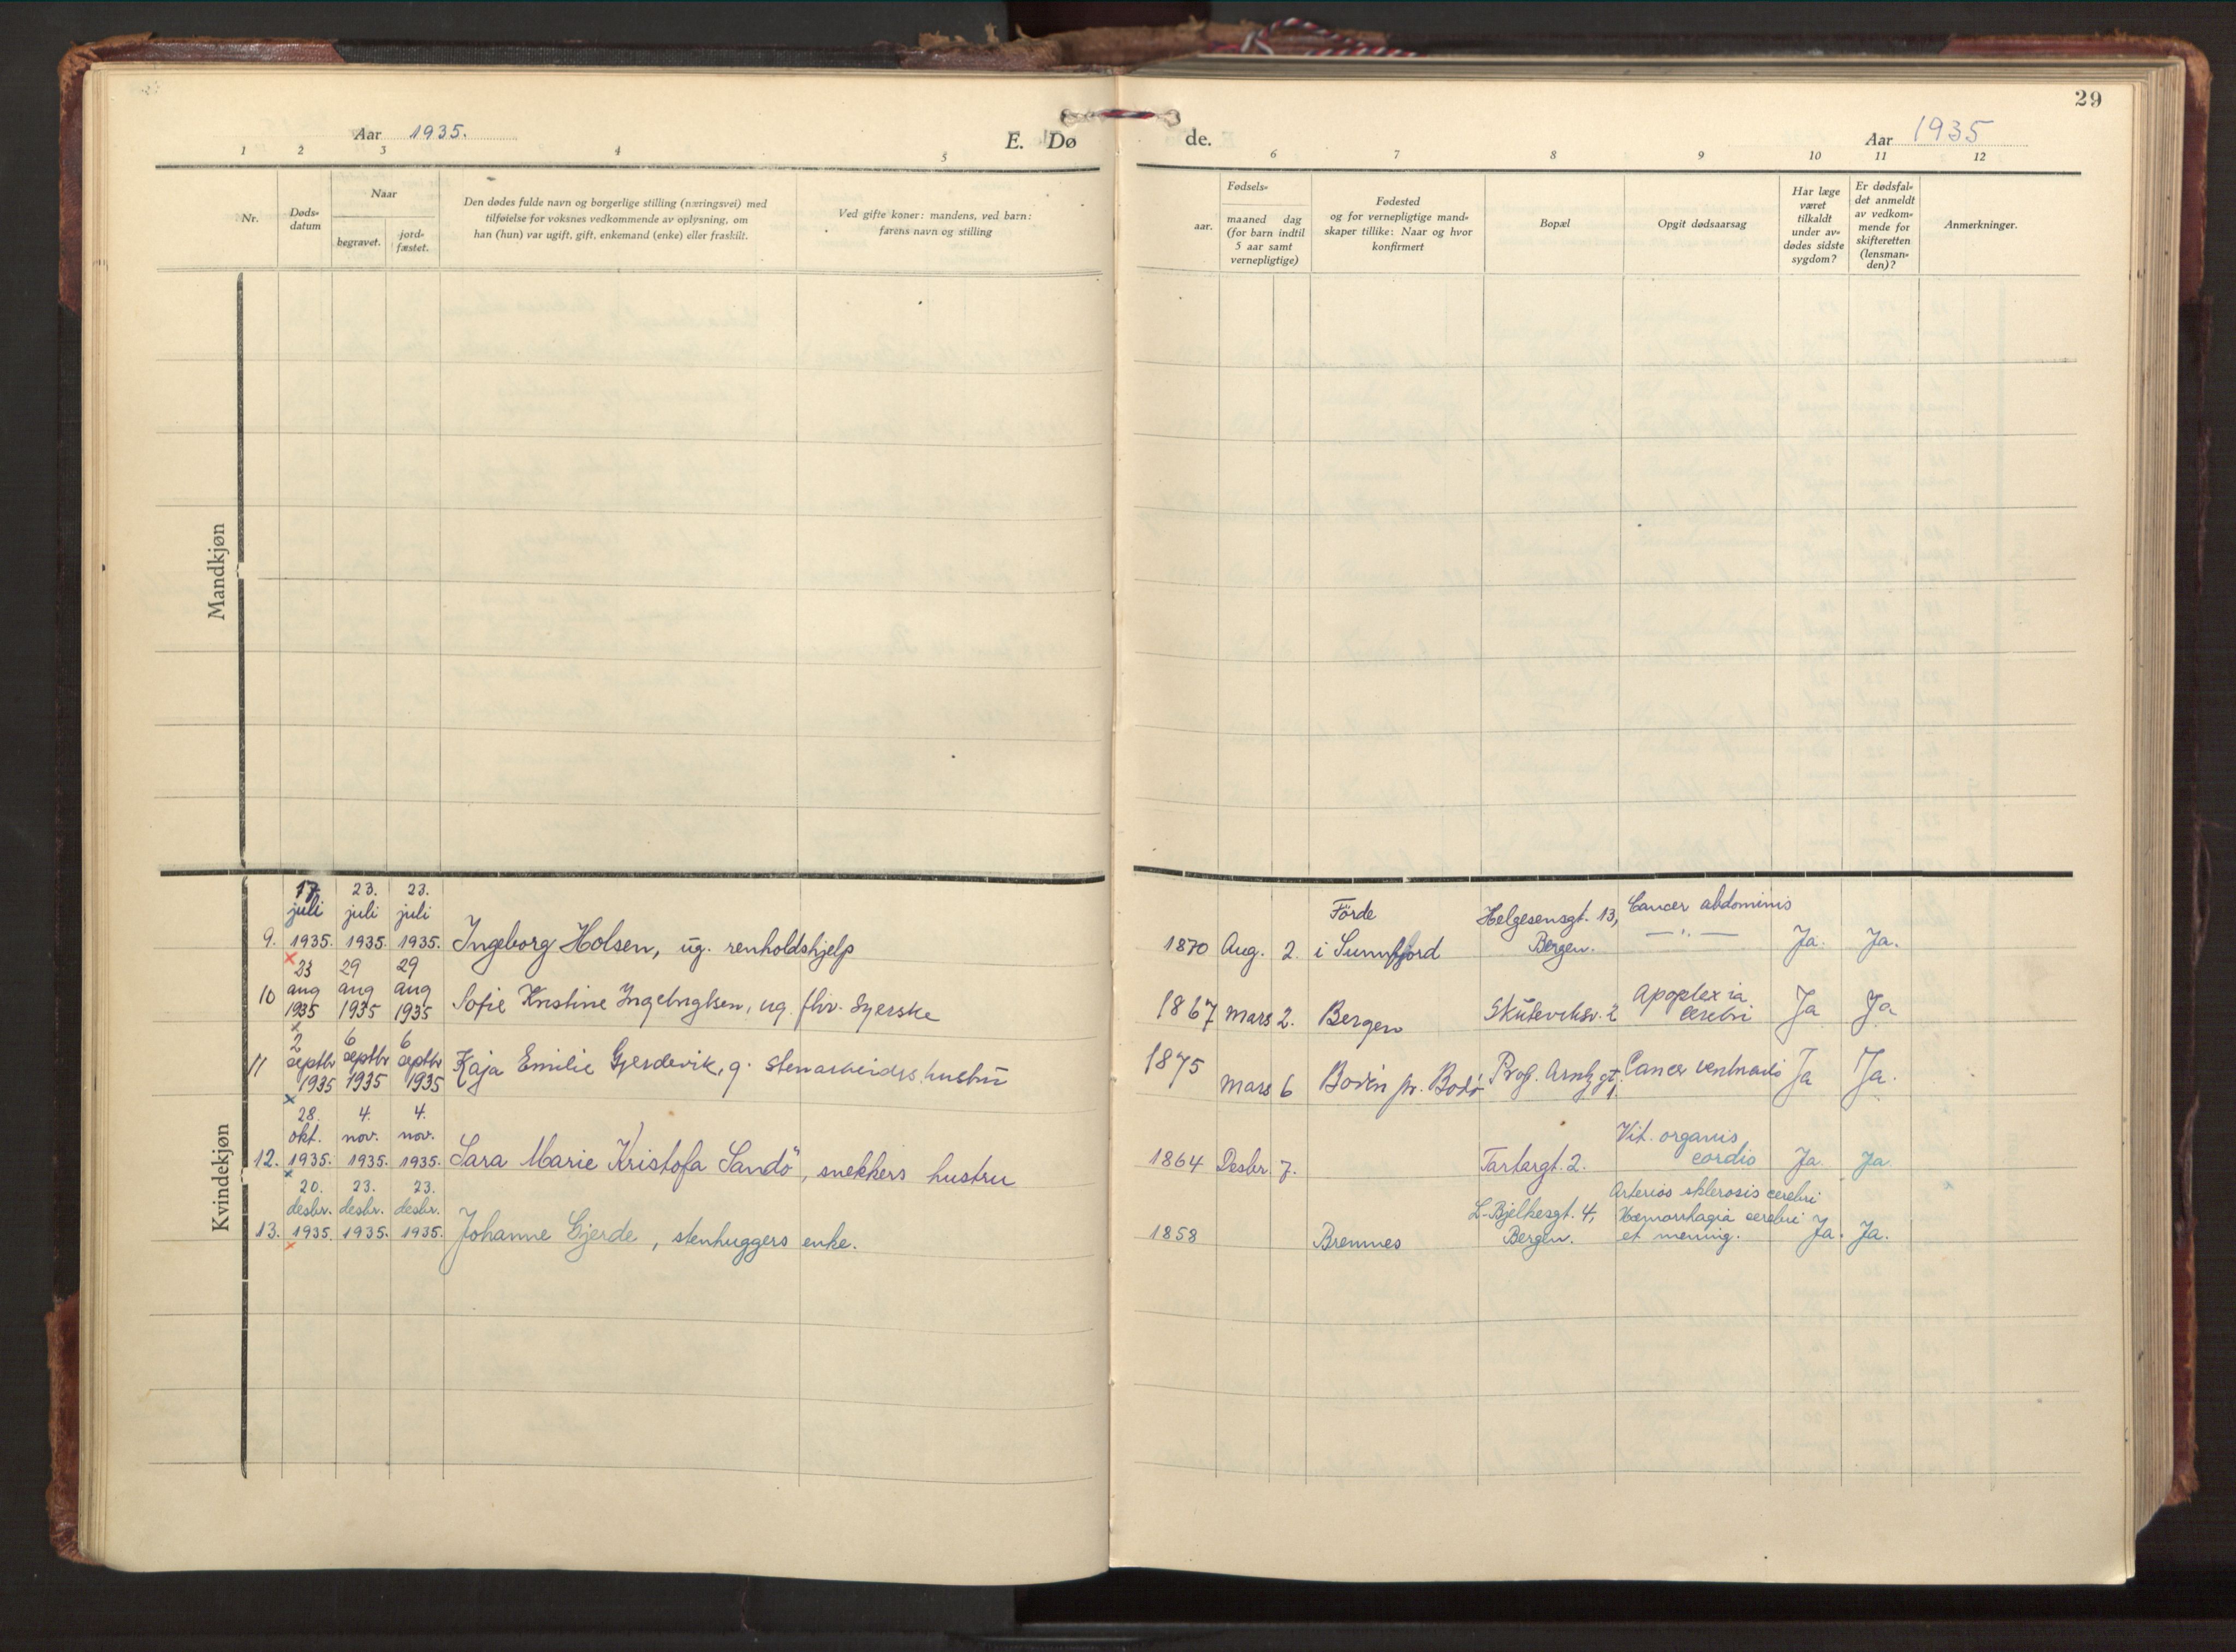 29
Aar 1935.
E. Dø
de.
Aar 1935
1 2 3 4 5
6 7 8 9 10 11 12
Nr.
Døds-
datum
Naar
begravet.
jord-
fæstet.
Den dødes fulde navn og borgerlige stilling (næringsvei) med
tilføielse for voksnes vedkommende av oplysning, om
han (hun) var ugift, gift, enkemand (enke) eller fraskilt.
Ved gifte koner: mandens, ved barn:
farens navn og stilling
Fødsels-
aar.
maaned dag
(for barn indtil
5 aar samt
vernepligtige)
Fødested
og for vernepligtige mand-
skaper tillike: Naar og hvor
konfirmert
Bopæl
Opgit dødsaarsag
Har læge
været
tilkaldt
under av-
dødes sidste
sygdom?
Er dødsfal-
det anmeldt
av vedkom-
mende for
skifteretten
(lensman-
den)?
Anmerkninger.
Mandkjøn
Kvindekjøn
17. 23. 23.
juli juli juli
9. 1935. 1935. 1935. Ingeborg Holsen, ug. renholdshjelp
Förde Helgesensgt. 13, Cancer abdominis
1870 Aug. 2. i Sunnfjord Bergen. — " — Ja. Ja.
23 29 29
aug aug aug
10 1935 1935 1935 Sofie Kristine Ingebrigtsen, ug. fhv. syerske
1867 Mars 2. Bergen Skuteviksv. 2 Apoplexia
cerebri Ja Ja
2 6 6
septbr septbr septbr
11 1935 1935 1935 Kaja Emilie Gjerdevik, g. stenarbeiders hustru
1875 Mars 6 Bodin pr. Bodø Prof. gt. 1. Cancer ventriculi Ja Ja.
28. 4. 4.
okt. nov. nov.
12. 1935. 1935. 1935. Sara Marie Kristofa Sandö, snekkers hustru
Vit. organis
1864 Desbr. 7. Tartargt. 2. cordis Ja. Ja.
20. 23. 23.
desbr. desbr. desbr.
13. 1935. 1935. 1935. Johanne Gjerde, stenhuggers enke.
Arterios sklerosis cerebri
L-Bjelkesgt. 4, Hæmorrhagia cerebri
1858 Bremnes Bergen. et mening. Ja. Ja.